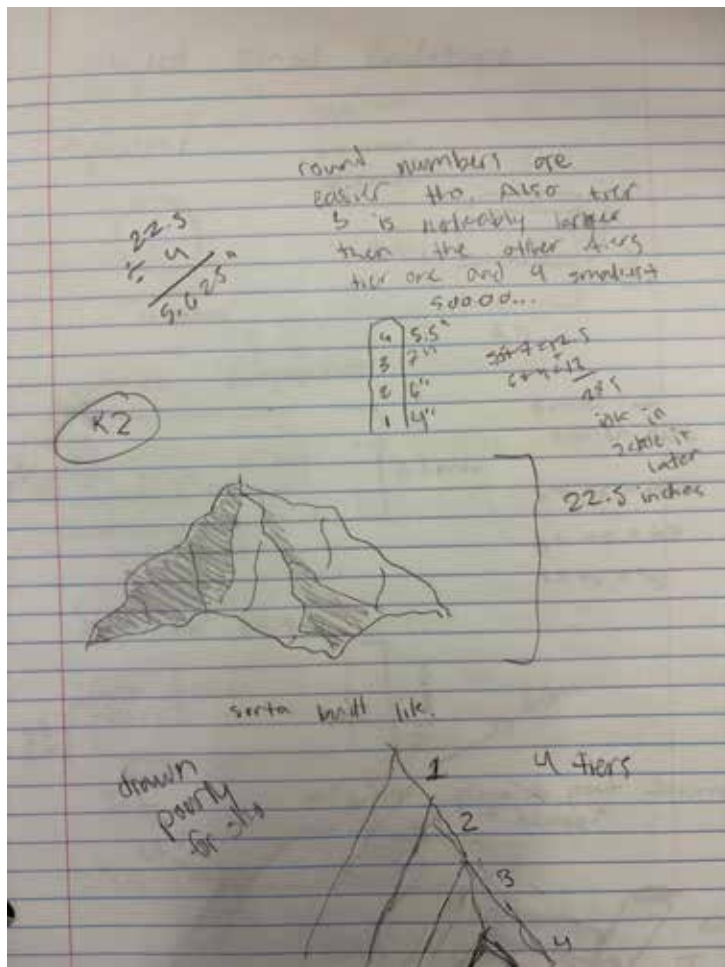 round numbers are
easier tho. Also tier
3 is noteably larger
then the other tiers
tier one and 4 smallest
sooooo...
22.5
÷ 4
5.625"
4 5.5"
3 7"
2 6"
1 4"
ink in
later
K2
22.5 inches
sorta built like.
drawn
poorly
4 tiers
1
2
3
4